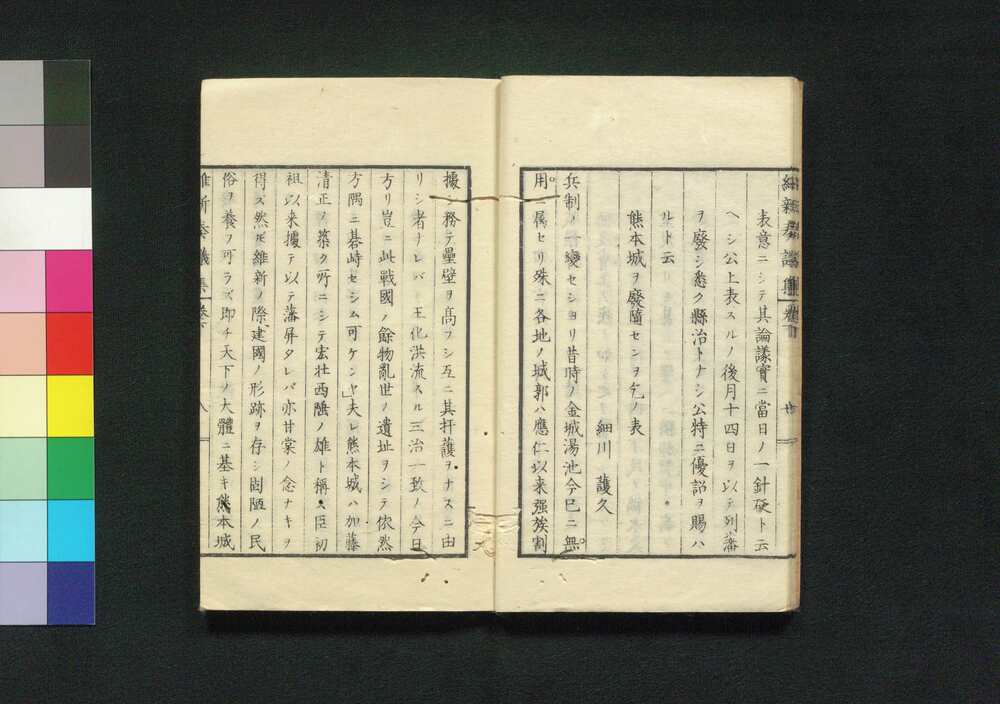 維新奏議集
表意ニシテ其論議實ニ當日ノ一針砭ト云
ヘシ公上表スルノ後月十四日ヲ以テ列藩
ヲ廢シ悉ク縣治トナシ公特ニ優詔ヲ賜ハ
ルト云
熊本城ヲ廢隳センヿヲ乞ノ表
細川護久
兵制ノ一變セシヨリ昔時ノ金城湯池今已ニ無
用ニ属セリ殊ニ各地ノ城郭ハ應仁以来强族割
據シ務テ壘壁ヲ高フシ互ニ其扞護ヲナスニ由
リシ者ナレバ王化洪流スル三治一致ノ今日
方リ豈ニ此戰國ノ餘物亂世ノ遺址ヲシテ依然
方隅ニ碁峙セシム可ケンヤ夫レ熊本城ハ加藤
清正ノ築ク所ニシテ宏壮西陲ノ雄ト稱ス臣初
祖以来據テ以テ藩屏タレバ亦甘棠ノ念ナキヲ
得ズ然𪜈維新ノ際建國ノ形跡ヲ存シ固陋ノ民
俗ヲ養フ可ラズ即チ天下ノ大體ニ基キ熊本城
維新奏議集 八